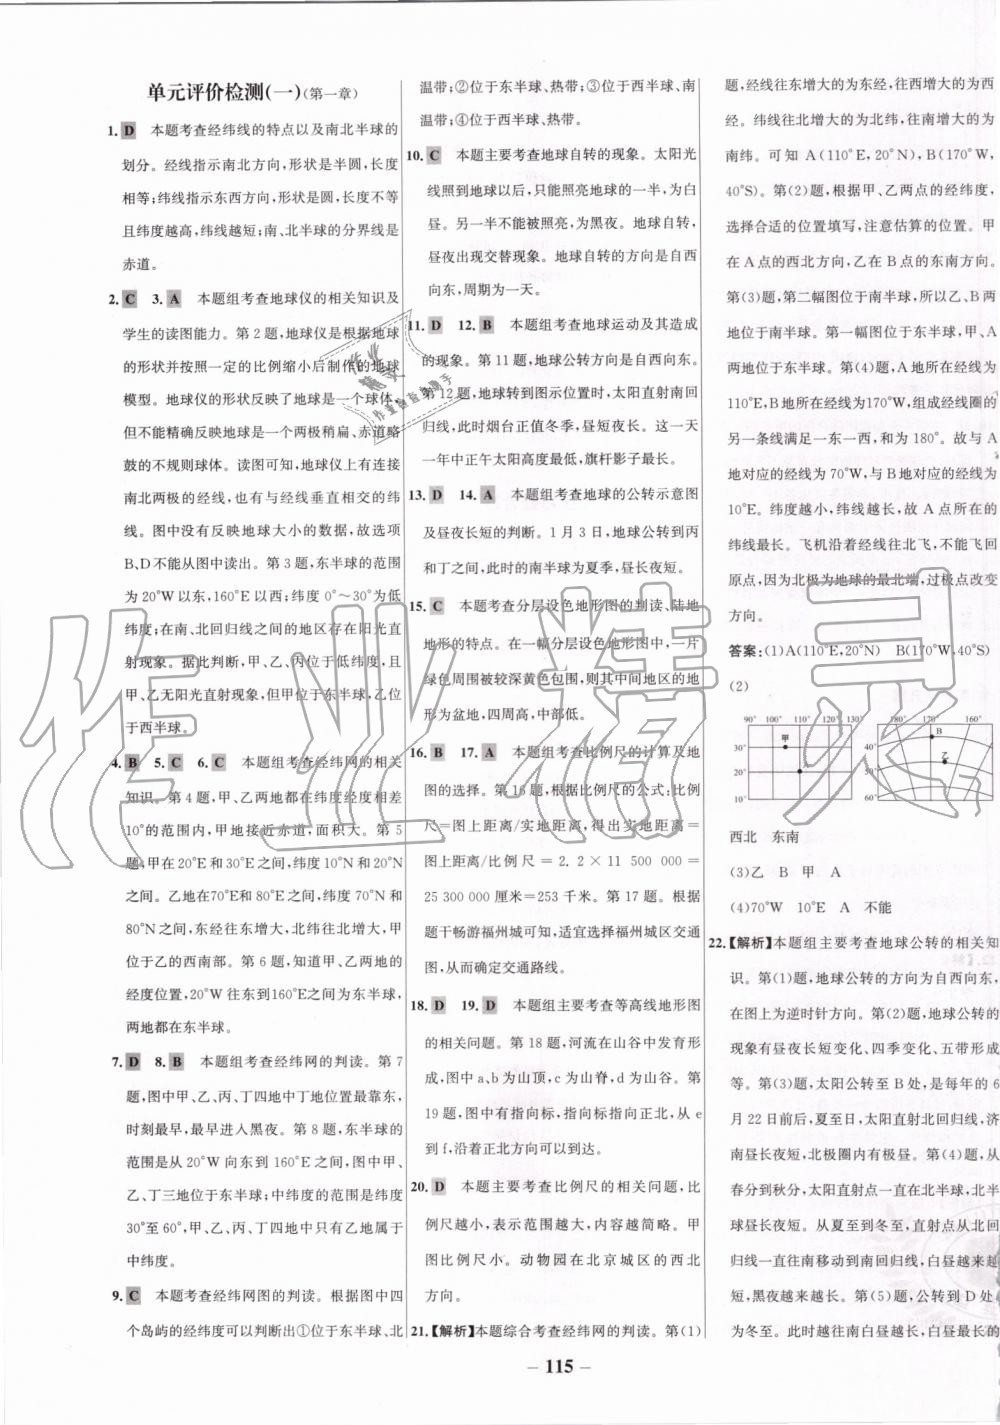 单元评价检测(一)(第一章)
1. D 本题考查经纬线的特点以及南北半球的
划分。经线指示南北方向,形状是半圆,长度
相等;纬线指示东西方向,形状是圆,长度不等
且纬度越高,纬线越短;南、北半球的分界线是
赤道。
2. C 3. A 本题组考查地球仪的相关知识及
学生的读图能力。第 2 题,地球仪是根据地球
的形状并按照一定的比例缩小后制作的地球
模型。地球仪的形状反映了地球是一个球体,
但不能精确反映地球是一个两极稍扁、赤道略
鼓的不规则球体。读图可知,地球仪上有连接
南北两极的经线,也有与经线垂直相交的纬
线。图中没有反映地球大小的数据,故选项
B、D不能从图中读出。第 3 题,东半球的范围
为 20°W以东,160°E以西;纬度 0°～30°为低
纬度;在南、北回归线之间的地区存在阳光直
射现象。据此判断,甲、乙、丙位于低纬度,且
甲、乙无阳光直射现象,但甲位于东半球,乙位
于西半球。
4. B 5. C 6. C 本题组考查经纬网的相关
知识。第 4 题,甲、乙两地都在纬度经度相差
10°的范围内,甲地接近赤道,面积大。第 5
题,甲在 20°E 和 30°E之间,纬度 10°N 和 20°N
之间。乙地在70°E和80°E之间,纬度 70°N 和
80°N 之间。东经度往东增大,北纬往北增大,
甲位于乙的西南部。第 6 题,知道甲、乙两地的
经度位置,20°W 往东到160°E之间为东半球,
两地都在东半球。
7. D 8. B 本题组考查经纬网的判读。第 7
题,图中甲、乙、丙、丁四地中丁地位置最靠东,
时刻最早,最早进入黑夜。第 8 题,东半球的
范围是从 20°W 向东到 160°E之间,图中甲、
乙、丁三地位于东半球;中纬度的范围是纬度
30°至 60°,甲、乙、丙、丁四地中只有乙地属于
中纬度。
9. C 本题考查经纬网图的判读。根据图中四
个岛屿的经纬度可以判断出①位于东半球、北
温带;②位于东半球、热带;③位于西半球、南
温带;④位于西半球、热带。
10. C 本题主要考查地球自转的现象。太阳光
线照到地球以后,只能照亮地球的一半,为白
昼。另一半不能被照亮,为黑夜。地球自转,
昼夜出现交替现象。地球自转的方向是自西
向东,周期为一天。
11. D 12. B 本题组考查地球运动及其造成
的现象。第 11 题,地球公转方向是自西向东。
第 12 题,地球转到图示位置时,太阳直射南回
归线,此时烟台正值冬季,昼短夜长。这一天
一年中正午太阳高度最低,旗杆影子最长。
13. D 14. A 本题组考查地球的公转示意图
及昼夜长短的判断。1 月 3 日,地球公转到丙
和丁之间,此时的南半球为夏季,昼长夜短。
15. C 本题考查分层设色地形图的判读、陆地
地形的特点。在一幅分层设色地形图中,一片
绿色周围被较深黄色包围,则其中间地区的地
形为盆地,四周高,中部低。
16. B 17. A 本题组考查比例尺的计算及地
图的选择。第 16 题,根据比例尺的公式:比例
尺＝图上距离/实地距离,得出实地距离＝
图上距离/比例尺＝2.2×11 500 000＝
25 300 000 厘米＝253 千米。第 17 题。根据
题干畅游福州城可知,适宜选择福州城区交通
图,从而确定交通路线。
18. D 19. D 本题组主要考查等高线地形图
的相关问题。第 18 题,河流在山谷中发育形
成,图中 a、b 为山顶,c 为山脊,d 为山谷。第
19 题,图中有指向标,指向标指向正北,从 e
到 f,沿着正北方向可以到达。
20. D 本题主要考查比例尺的相关问题,比
例尺越小,表示范围越大,内容越简略。甲
图比例尺小。动物园在北京城区的西北
方向。
21.【解析】本题综合考查经纬网的判读。第(1)
题,经线往东增大的为东经,往西增大的为西
经。纬线往北增大的为北纬,往南增大的为
南纬。可知 A(110°E,20°N),B(170°W,
40°S)。第(2)题,根据甲、乙两点的经纬度,
选择合适的位置填写,注意估算的位置。甲
在 A 点的西北方向,乙在 B 点的东南方向。
第(3)题,第二幅图位于南半球,所以乙、B 两
地位于南半球。第一幅图位于东半球,甲、A
两地位于东半球。第(4)题,A 所在经线为
110°E,B所在经线为170°W,组成经线圈的
另一条线满足一东一西,和为 180°。故与 A
地对应的经线为 70°W,与 B 地对应的经线为
10°E。纬度越小,纬线越长,故 A 点所在的
纬线最长。飞机沿着经线往北飞,不能飞回
原点,因为北极为地球的最北端,过极点改变
方向。
答案:(1)A(110°E,20°N) B(170°W,40°S)
(2)
90° 100° 110° 120° 130°
30°
20°
10°
甲
180° 170° 160°
40°
50°
60°
B
乙
西北 东南
(3)乙 B 甲 A
(4)70°W 10°E A 不能
22.【解析】本题组主要考查地球公转的相关知
识。第(1)题,地球公转的方向为自西向东,
在图上为逆时针方向。第(2)题,地球公转的
现象有昼夜长短变化、四季变化、五带形成
等。第(3)题,太阳公转至 B 处,是每年的 6
月 22 日前后,夏至日,太阳直射北回归线,济
南昼长夜短,北极圈内有极昼。第(4)题,从
春分到秋分,太阳直射点一直在北半球,北半
球昼长夜短。从夏至到冬至,直射点从北回
归线一直往南移动到南回归线,白昼越来越
短,黑夜越来越长。第(5)题,公转到 D 处
为冬至。此时越往南白昼越长,白昼最长的
– 115 –
作业精灵